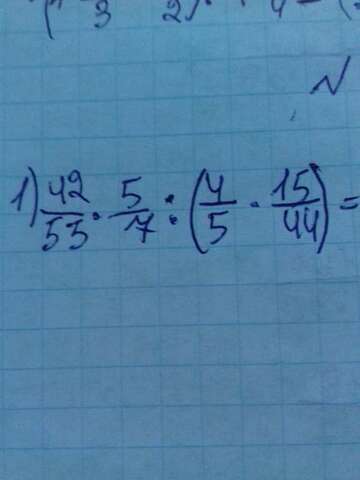 3 2) 4
N
1) 42/53 · 5/7 : (4/5 · 15/44) =